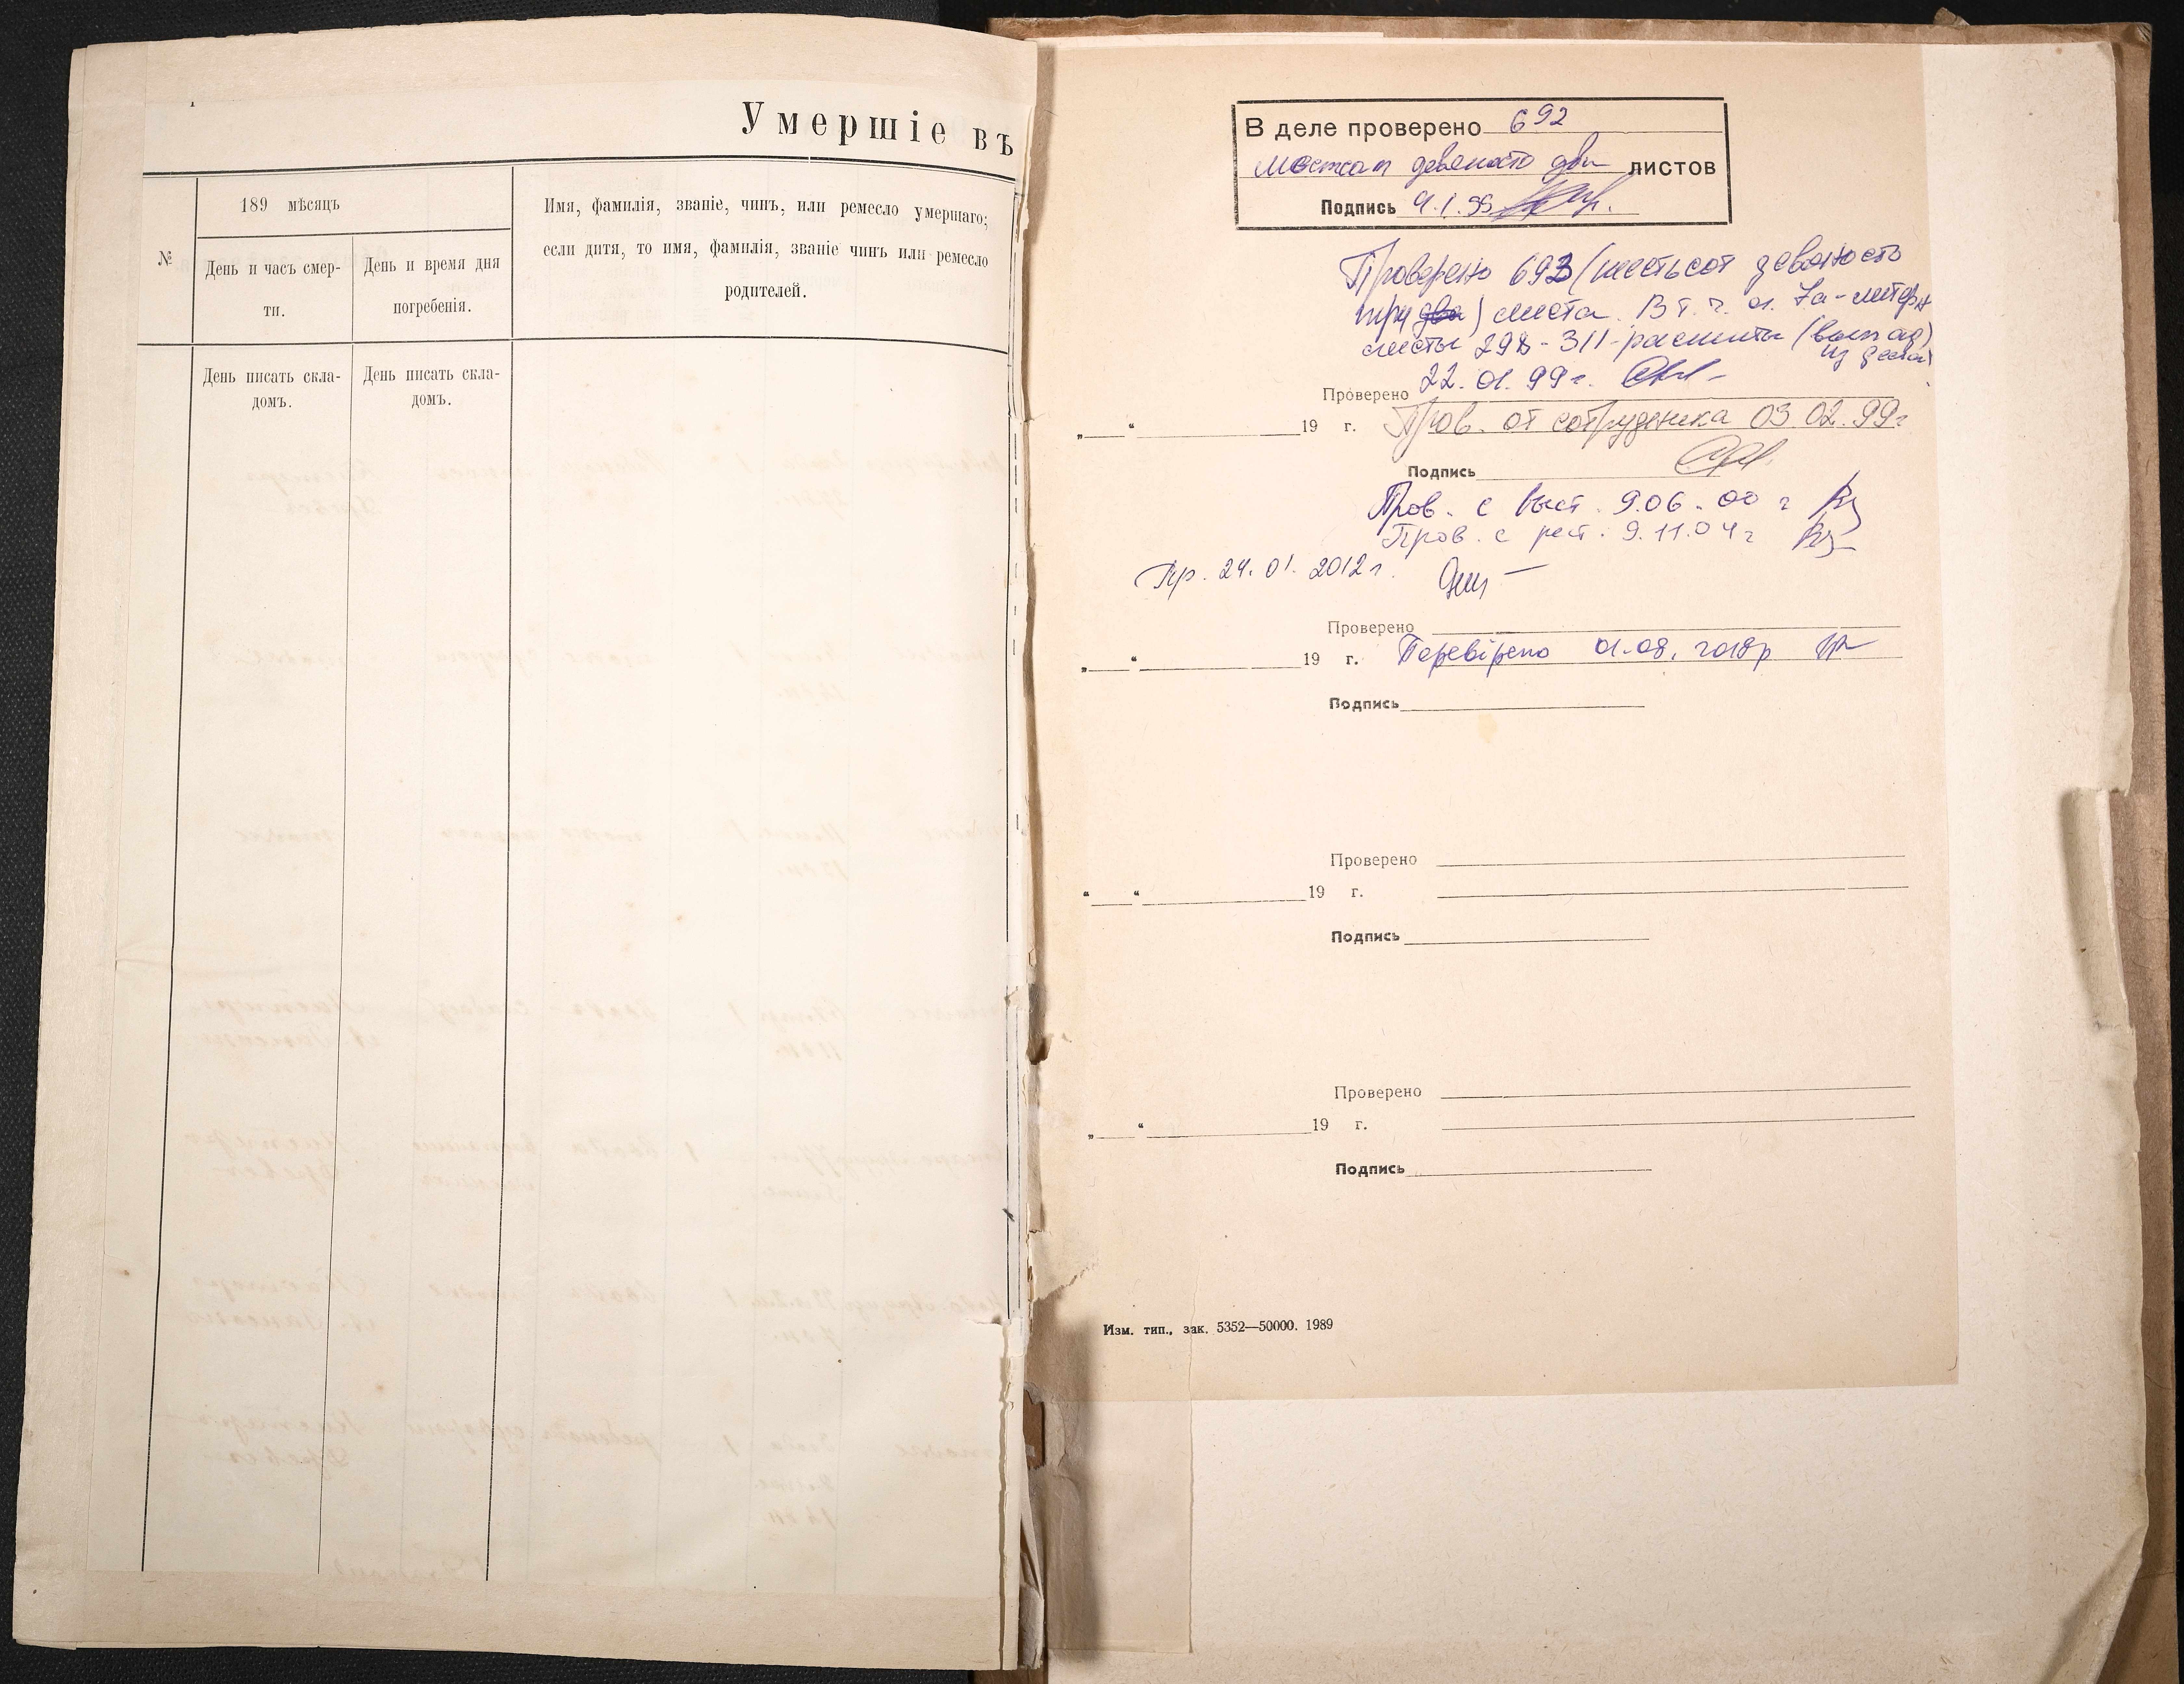 Умершіе въ
№
189 мѣсяцъ
День и часъ смер-
ти.
День и время дня
погребенія.
Имя, фамилія, званіе, чинъ, или ремесло умершаго;
если дитя, то имя, фамилія, званіе чинъ или ремесло
родителей.
День писать скла-
домъ.
День писать скла-
домъ.
В деле проверено 692
шестьсот девяносто два листов
Подпись 4.1.99
Проверено 693 (шестьсот девяносто
три два) листа. В т. ч. л. 7а - литерн
листы 298-311 - расшиты (выпад)
из дела
Проверено 22.01.99г.
„ “ 19 г. Пров. от сотрудника 03.02.99г
Подпись
Пров. с выст. 9.06.00 г
Пров. с рест. 9.11.04г
Пр. 24.01.2012г.
Проверено
„ “ 19 г. Перевірено 01.08.2018р
Подпись
Проверено
“ “ 19 г.
Подпись
Проверено
„ “ 19 г.
Подпись
Изм. тип., зак. 5352—50000. 1989